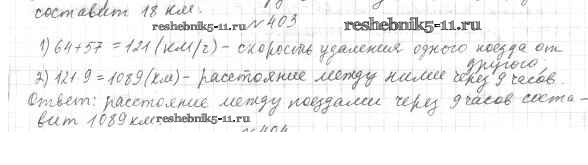 составит 18 км.
reshebnik5-11.ru № 403 reshebnik5-11.ru
1) 64+57 = 121 (км/ч) - скорость удаления одного поезда от
другого,
2) 121·9 = 1089 (км) - расстояние между ними через 9 часов.
Ответ: расстояние между поездами через 9 часов соста-
вит 1089 км. reshebnik5-11.ru
№ 404